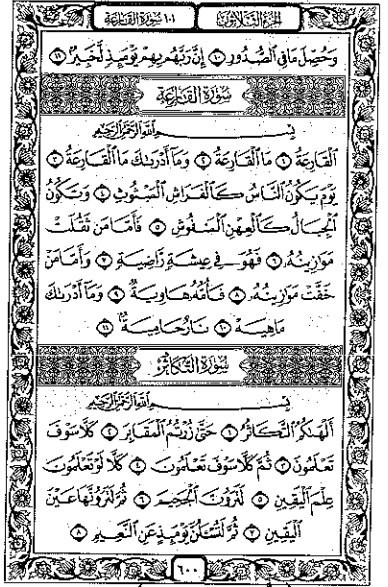 الجزء الثلاثون
١٠١ سورة القارعة
وَحُصِّلَ مَا فِي الصُّدُورِ ۝١٠ إِنَّ رَبَّهُم بِهِمْ يَوْمَئِذٍ لَّخَبِيرٌ ۝١١
سُورَةُ القَارِعَةِ
بِسْمِ اللَّهِ الرَّحْمَٰنِ الرَّحِيمِ
الْقَارِعَةُ ۝١ مَا الْقَارِعَةُ ۝٢ وَمَا أَدْرَاكَ مَا الْقَارِعَةُ ۝٣
يَوْمَ يَكُونُ النَّاسُ كَالْفَرَاشِ الْمَبْثُوثِ ۝٤ وَتَكُونُ
الْجِبَالُ كَالْعِهْنِ الْمَنفُوشِ ۝٥ فَأَمَّا مَن ثَقُلَتْ
مَوَازِينُهُ ۝٦ فَهُوَ فِي عِيشَةٍ رَّاضِيَةٍ ۝٧ وَأَمَّا مَنْ
خَفَّتْ مَوَازِينُهُ ۝٨ فَأُمُّهُ هَاوِيَةٌ ۝٩ وَمَا أَدْرَاكَ
مَا هِيَهْ ۝١٠ نَارٌ حَامِيَةٌ ۝١١
سُورَةُ التَّكَاثُرِ
بِسْمِ اللَّهِ الرَّحْمَٰنِ الرَّحِيمِ
أَلْهَاكُمُ التَّكَاثُرُ ۝١ حَتَّىٰ زُرْتُمُ الْمَقَابِرَ ۝٢ كَلَّا سَوْفَ
تَعْلَمُونَ ۝٣ ثُمَّ كَلَّا سَوْفَ تَعْلَمُونَ ۝٤ كَلَّا لَوْ تَعْلَمُونَ
عِلْمَ الْيَقِينِ ۝٥ لَتَرَوُنَّ الْجَحِيمَ ۝٦ ثُمَّ لَتَرَوُنَّهَا عَيْنَ
الْيَقِينِ ۝٧ ثُمَّ لَتُسْأَلُنَّ يَوْمَئِذٍ عَنِ النَّعِيمِ ۝٨
٦٠٠